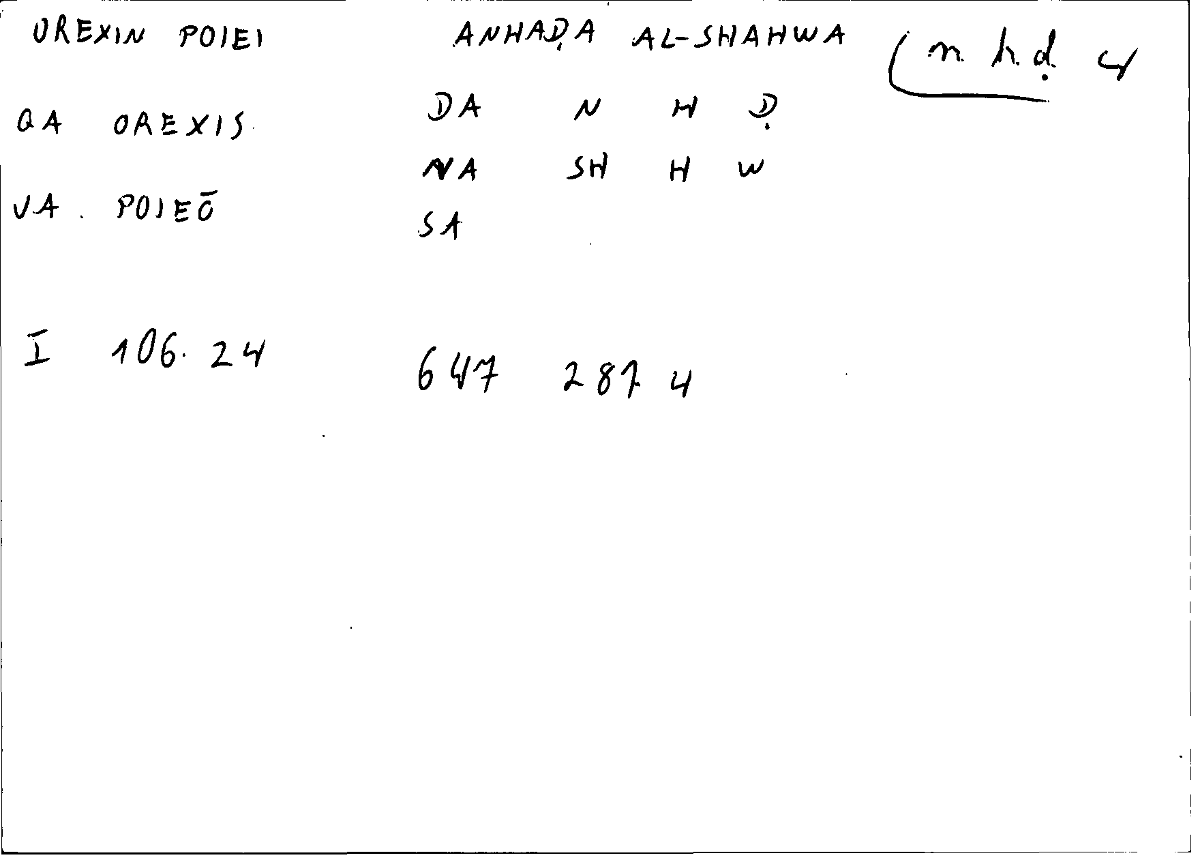 OREXIN POIEI ANHAḌA AL-SHAHWA (n h ḍ 4
QA OREXIS DA N H Ḍ
NA SH H W
VA. POIEŌ
SA
I 106.24
647 287 4